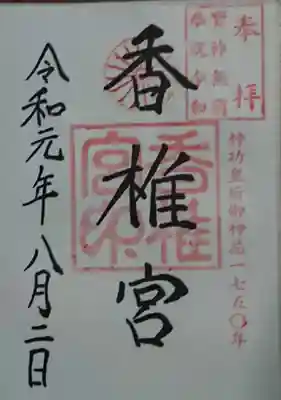 奉拝
神功皇后御神忌一七五〇年
香椎宮
香椎
宮印
令和元年八月二日